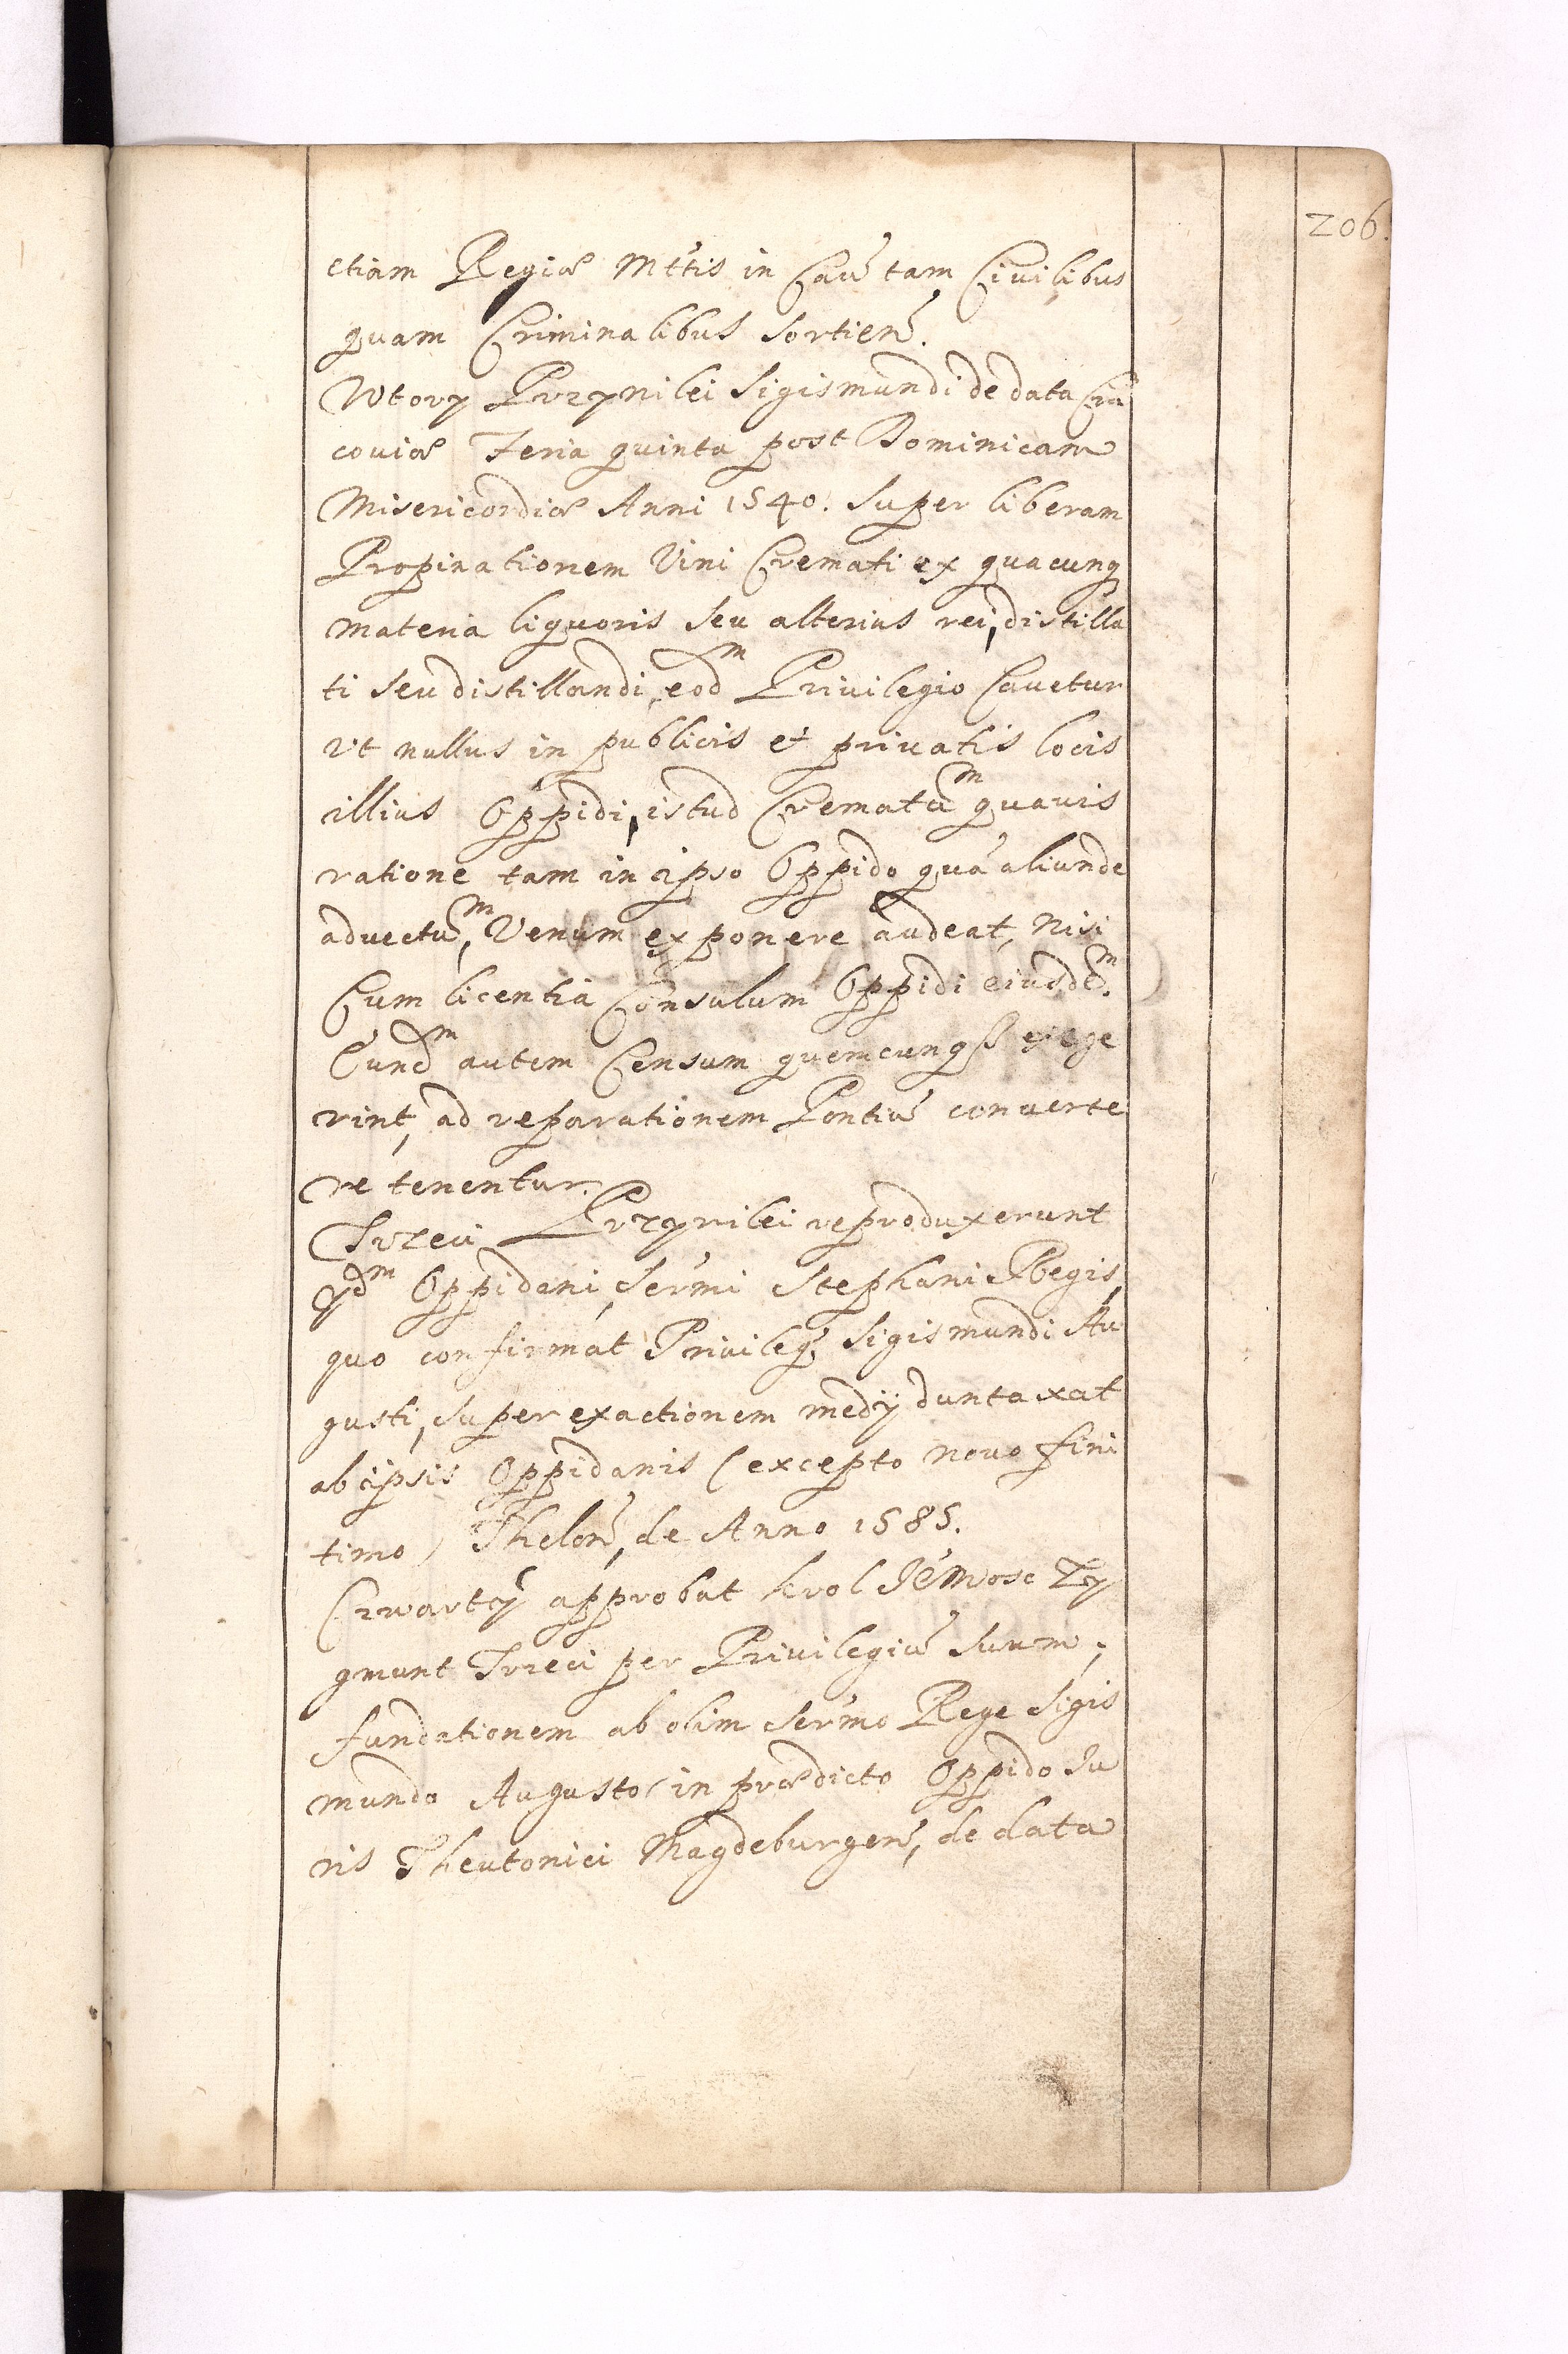 206.
ctiam Regiæ Mttis in Cau͂ tam Ciuilibus
quam Criminalibus sortien͂.
Wtory Przywilei Sigismundi de data Cra
couiæ Feria quinta post Dominicam
Misericordiæ Anni 1540. super liberam
Propinationem Vini Cremati ex quacunq
materia liquoris seu alterius rei, distilla
ti seu distillandi, eodm Priuilegio Cauetur
vt nullus in publicis et priuatis locis
illius Oppidi, istud Crematum quauis
ratione tam in ipso Oppido quá aliunde
aduectum, Venum exponere audeat, nisi
Cum licentia Consulum Oppidi eiusdem.
Eundm autem Censum quemcunq exege
rint, ad reparationem Pontiu͂ conuerte
re tenentur.
Trzeci Przywilei reproduxerunt
ydm Oppidani, Sermi Stephani Regis,
quo confirmat Priuileg Sigismundi Au
gusti, super exactionem medÿ duntaxat
ab ipsis Oppidanis (excepto nouo fini
timo) Thelon͂, de Anno 1585.
Czwarty approbat krol Jé Mosc Zy
gmunt Trzeci per Priuilegiu͂ suum,
fundationem ab olim Sermo Rege Sigis
mundo Augusto, in prædicto Oppido Ju
ris Theutonici Magdeburgen͂, de data